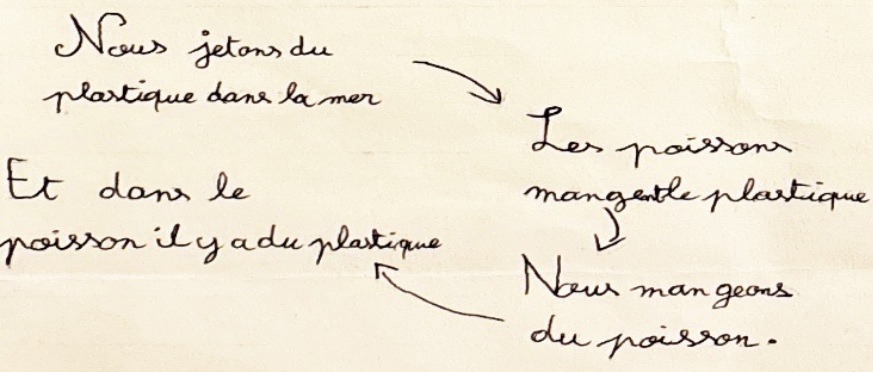 Nous jetons du
plastique dans la mer
Les poissons
mangent le plastique
Nous mangeons
du poisson.
Et dans le
poisson il y a du plastique